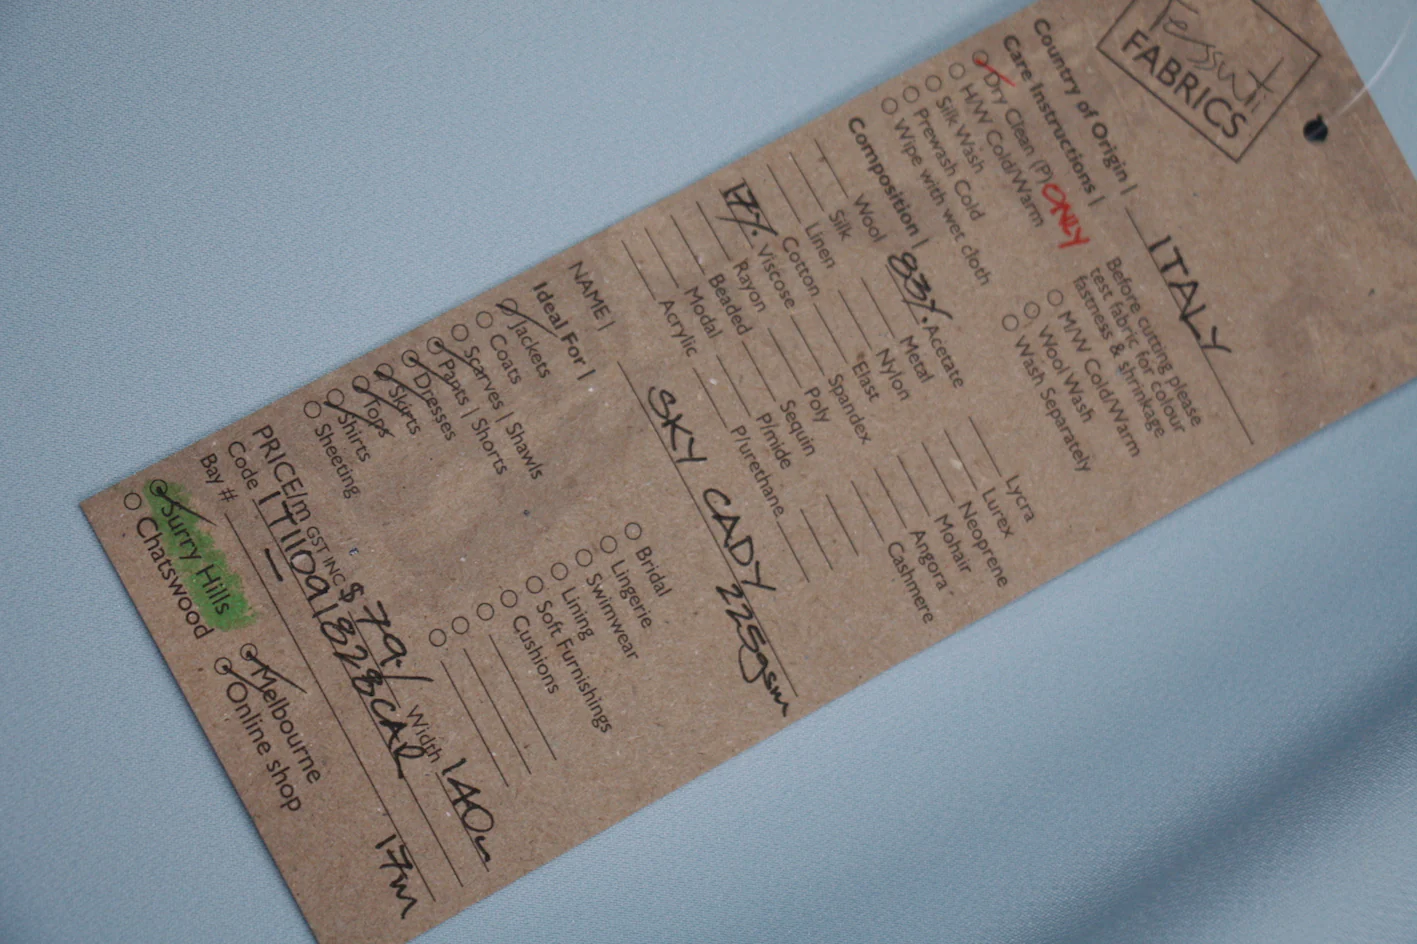 Tessuti
FABRICS
Country of Origin | ITALY
Care Instructions |
Dry Clean (P) ONLY
H/W Cold/Warm
Silk Wash
Prewash Cold
Wipe with wet cloth
Before cutting please
test fabric for colour
fastness & shrinkage
M/W Cold/Warm
Wool Wash
Wash Separately
Composition |
Wool
Silk
Linen
Cotton
17% Viscose
Rayon
Beaded
Modal
Acrylic
83% Acetate
Metal
Nylon
Elast
Spandex
Poly
Sequin
P/mide
P/urethane
Lycra
Lurex
Neoprene
Mohair
Angora
Cashmere
NAME | SKY CADY 225gsm
Ideal For |
Jackets
Coats
Scarves | Shawls
Pants | Shorts
Dresses
Skirts
Tops
Shirts
Sheeting
Bridal
Lingerie
Swimwear
Lining
Soft Furnishings
Cushions
PRICE/m GST INC $79/ Width 140
Code
Bay # 17m
Surry Hills
Chatswood
Melbourne
Online shop